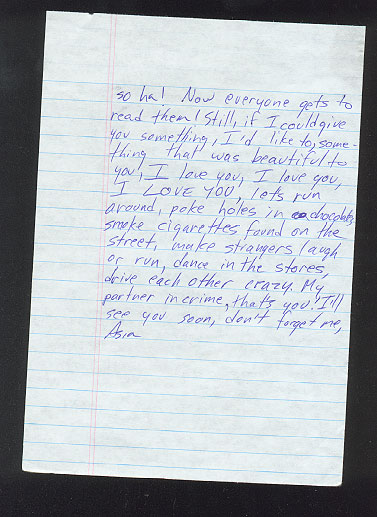 so ha! Now everyone gets to
read them! Still, if I could give
you something, I'd like to, some-
thing that was beautiful to
you, I love you, I love you,
I LOVE YOU, let's run
around, poke holes in chocolates,
smoke cigarettes found on the
street, make strangers laugh
or run, dance in the stores,
drive each other crazy. My
partner in crime, that's you! I'll
see you soon, don't forget me,
Asia